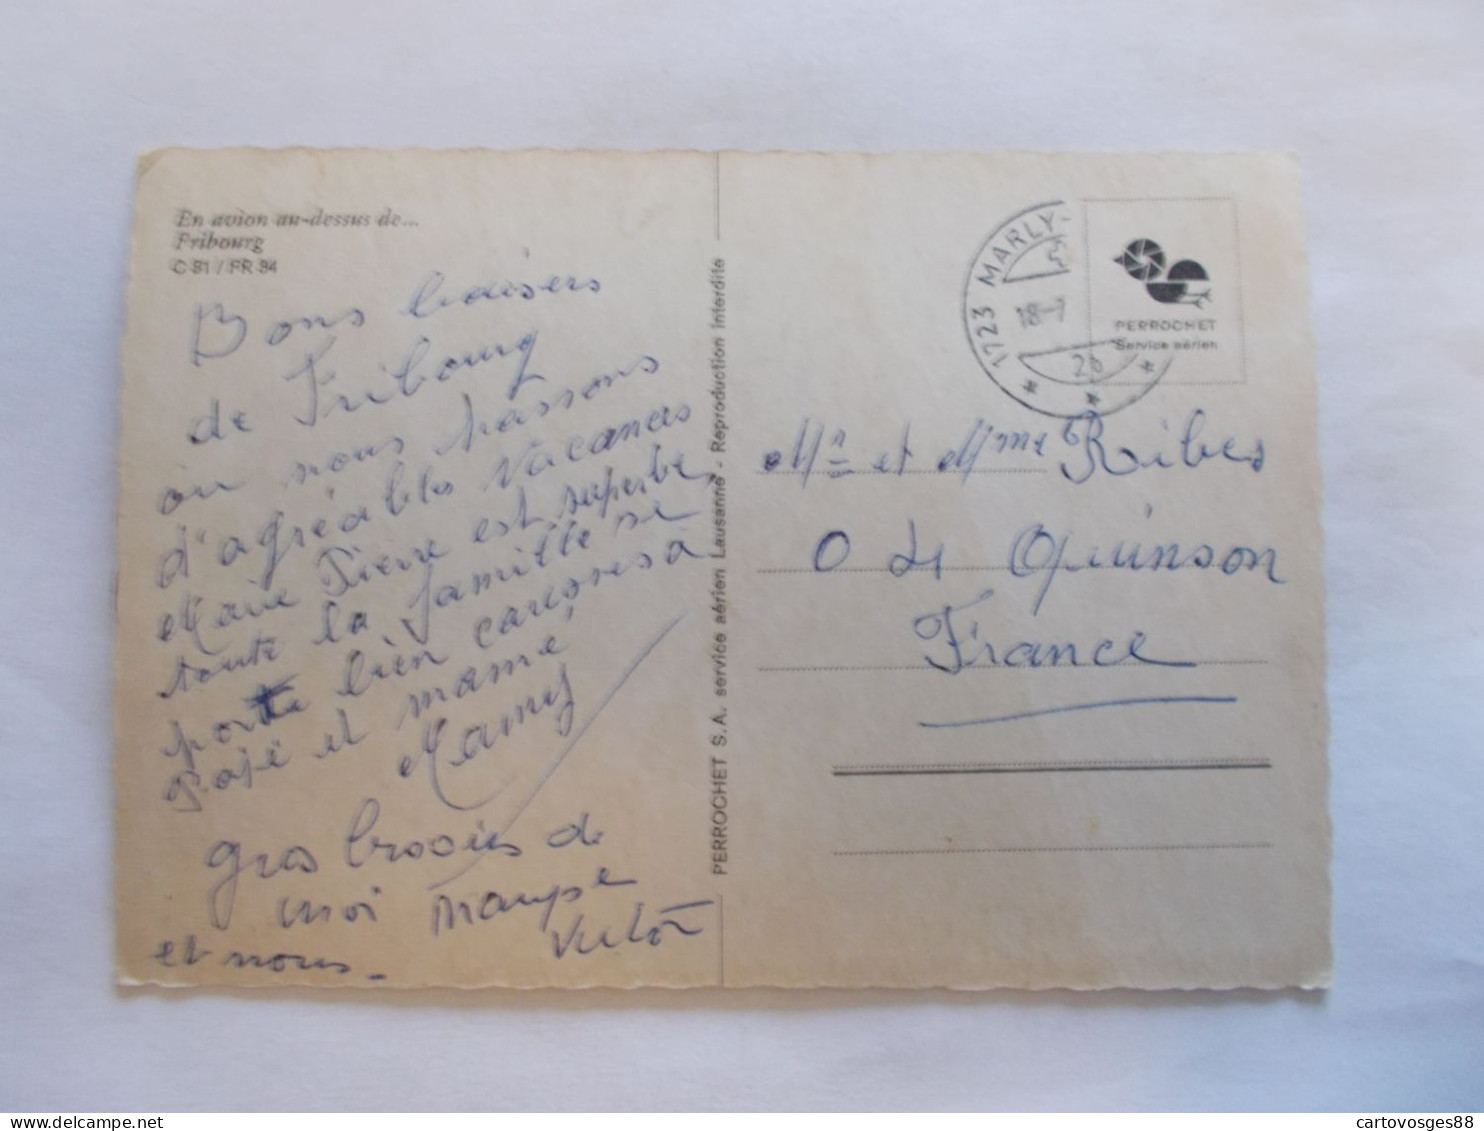 En avion au-dessus de...
Fribourg
C 81 / FR 94
Bons baisers
de Fribourg
ou nous passons
d'agréables vacances
Marie Pierre est superbe,
toute la famille se
porte bien caresses à
et mamé,
Mamy
gros de
moi
et nous
PERROCHET S.A. service aérien Lausanne - Reproduction interdite
1723 MARLY
18-7
PERROCHET
Service aérien
Mr et Mme Ribes
04 Quinson
France
cartovosges88